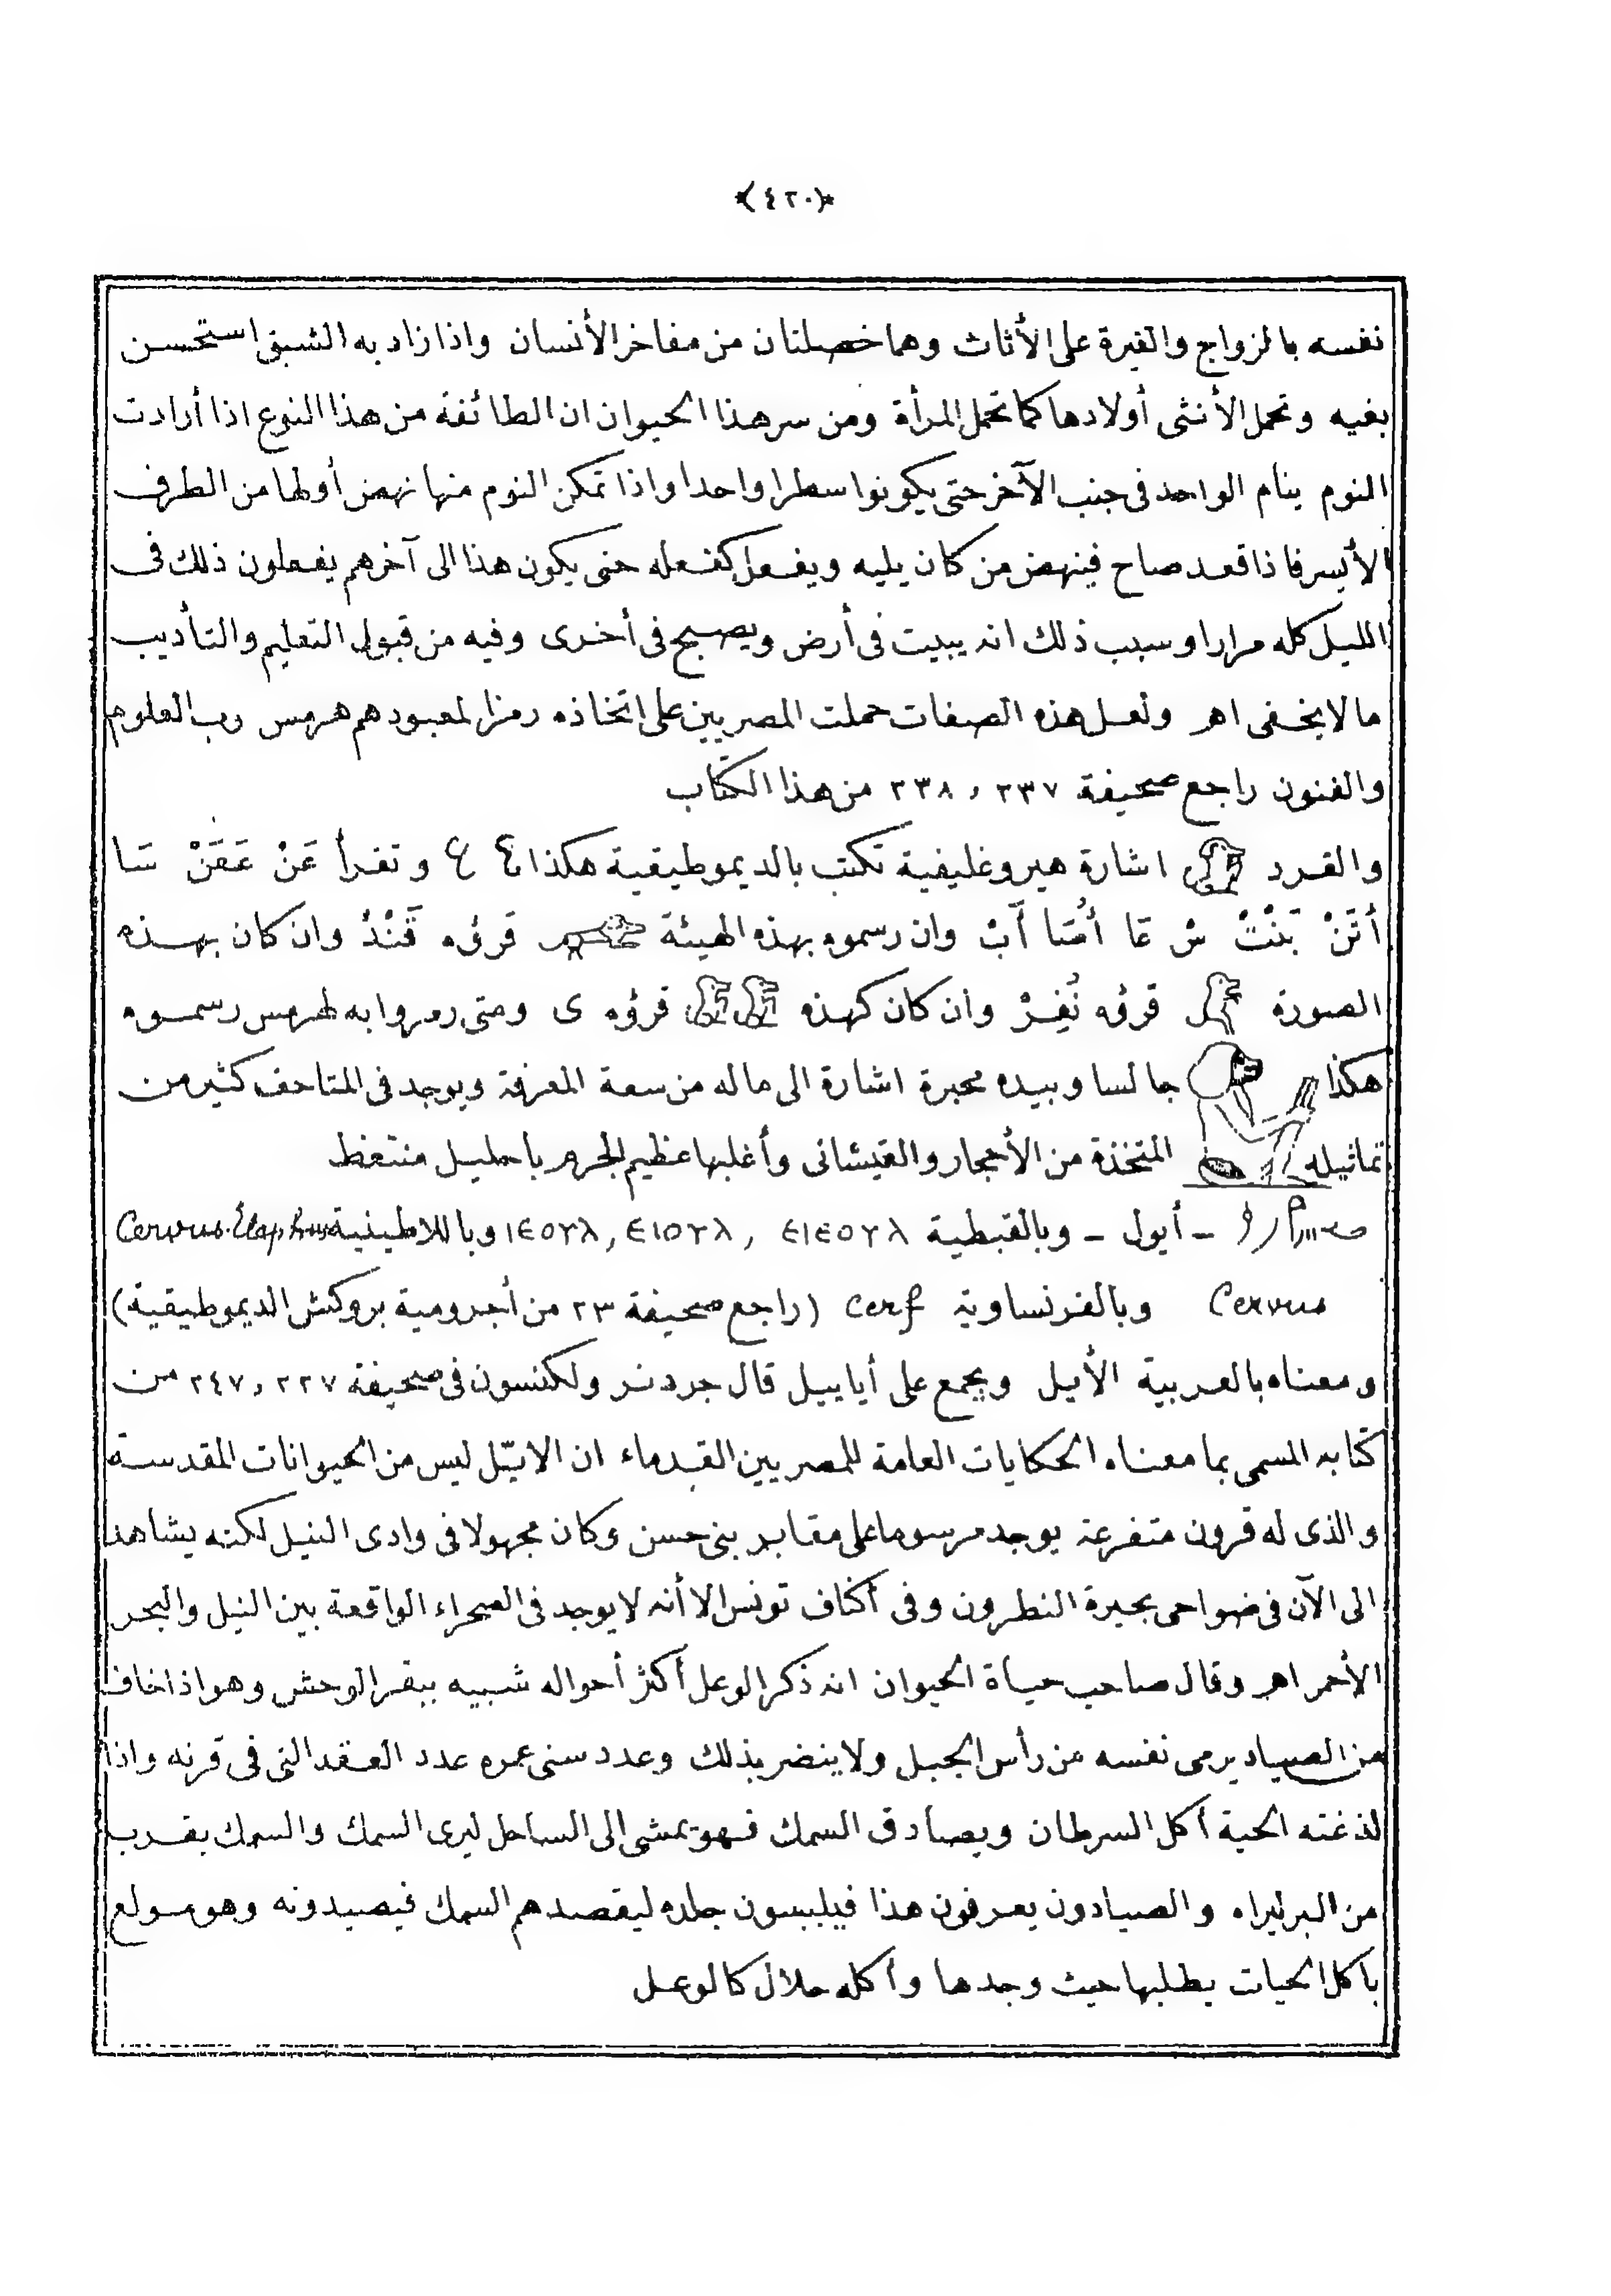 *(٤٢٠)*
نفسه بالزواج والغيرة على الأناث وهما خصلتان من مفاخر الأنسان واذا زاد به الشبق استحسن
بغيه وتحمل الأنثى أولادها كما تحمل المرأة ومن سر هذا الحيوان ان الطائفة من هذا النوع اذا أرادت
النوم ينام الواحد فى جنب الآخر حتى يكونوا سطرا واحدا واذا تمكن النوم منها نهض أولها من الطرف
الأيسر فاذا قعد صاح فينهض من كان يليه ويفعل كفعله حتى يكون هذا الى آخرهم يفعلون ذلك فى
الليل كله مرارا وسبب ذلك انه يبيت فى أرض ويصبح فى أخرى وفيه من قبول التعليم والتأديب
ما لا يخفى اهر ولعل هذه الصفات حملت المصريين على إتخاذه رمزا لمعبودهم هرمس رب العلوم
والفنون راجع صحيفة ٢٣٧ , ٢٣٨ من هذا الكتاب
والقرد اشارة هيروغليفية تكتب بالديموطيقية هكذا وتقرأ عَنْ عَقَنْ سَا
أَتَنْ بَنْتْ ش عَا أُمْتَا آبْ وان رسموه بهذه الهيئة قرؤه قَنْدْ وان كان بهذه
الصورة قرؤه نُفِرْ وان كان كهذه قرؤه ى ومتى رمزوا به لهرمس رسموه
هكذا جالسا وبيده محبرة اشارة الى ماله من سعة المعرفة ويوجد فى المتاحف كثير من
تماثيله المتخذة من الأحجار والقيشانى وأغلبها عظيم الجرم بأحليل منتعظ
ـ أيول ـ وبالقبطية ⲉⲓⲉⲟⲩⲗ , ⲉⲓⲟⲩⲗ , ⲓⲉⲟⲩⲗ وباللاطينية Cervus. Elaphus
Cervus وبالفرنساوية Cerf (راجع صحيفة ٢٣ من أجرومية بروكش الديموطيقية)
ومعناه بالعربية الأيل ويجمع على أياييل قال جردنر ولكنسون فى صحيفة ٢٢٧ , ٢٤٧ من
كتابه المسمى بما معناه الحكايات العامة للمصريين القدماء ان الايّل ليس من الحيوانات المقدسة
والذى له قرون متفرعة يوجد مرسوما على مقابر بنى حسن وكان مجهولا فى وادى النيل لكنه يشاهد
الى الآن فى ضواحى بحيرة النطرون وفى أكناف تونس الا أنه لا يوجد فى الصحراء الواقعة بين النيل والبحر
الأحمر اهر وقال صاحب حياة الحيوان انه ذكر الوعل أكثر أحواله شبيه ببقر الوحش وهو اذا خاف
من الصياد يرمى نفسه من رأس الجبل ولا ينضر بذلك وعدد سنى عمره عدد العقد التى فى قرنه واذا
لذغته الحية أكل السرطان ويصادق السمك فهو يمشى الى الساحل ليرى السمك والسمك يقرب
من البر ليراه والصيادون يعرفون هذا فيلبسون جلده ليقصدهم السمك فيصيدونه وهو مولع
بأكل الحيات يطلبها حيث وجدها وأكله حلال كالوعل